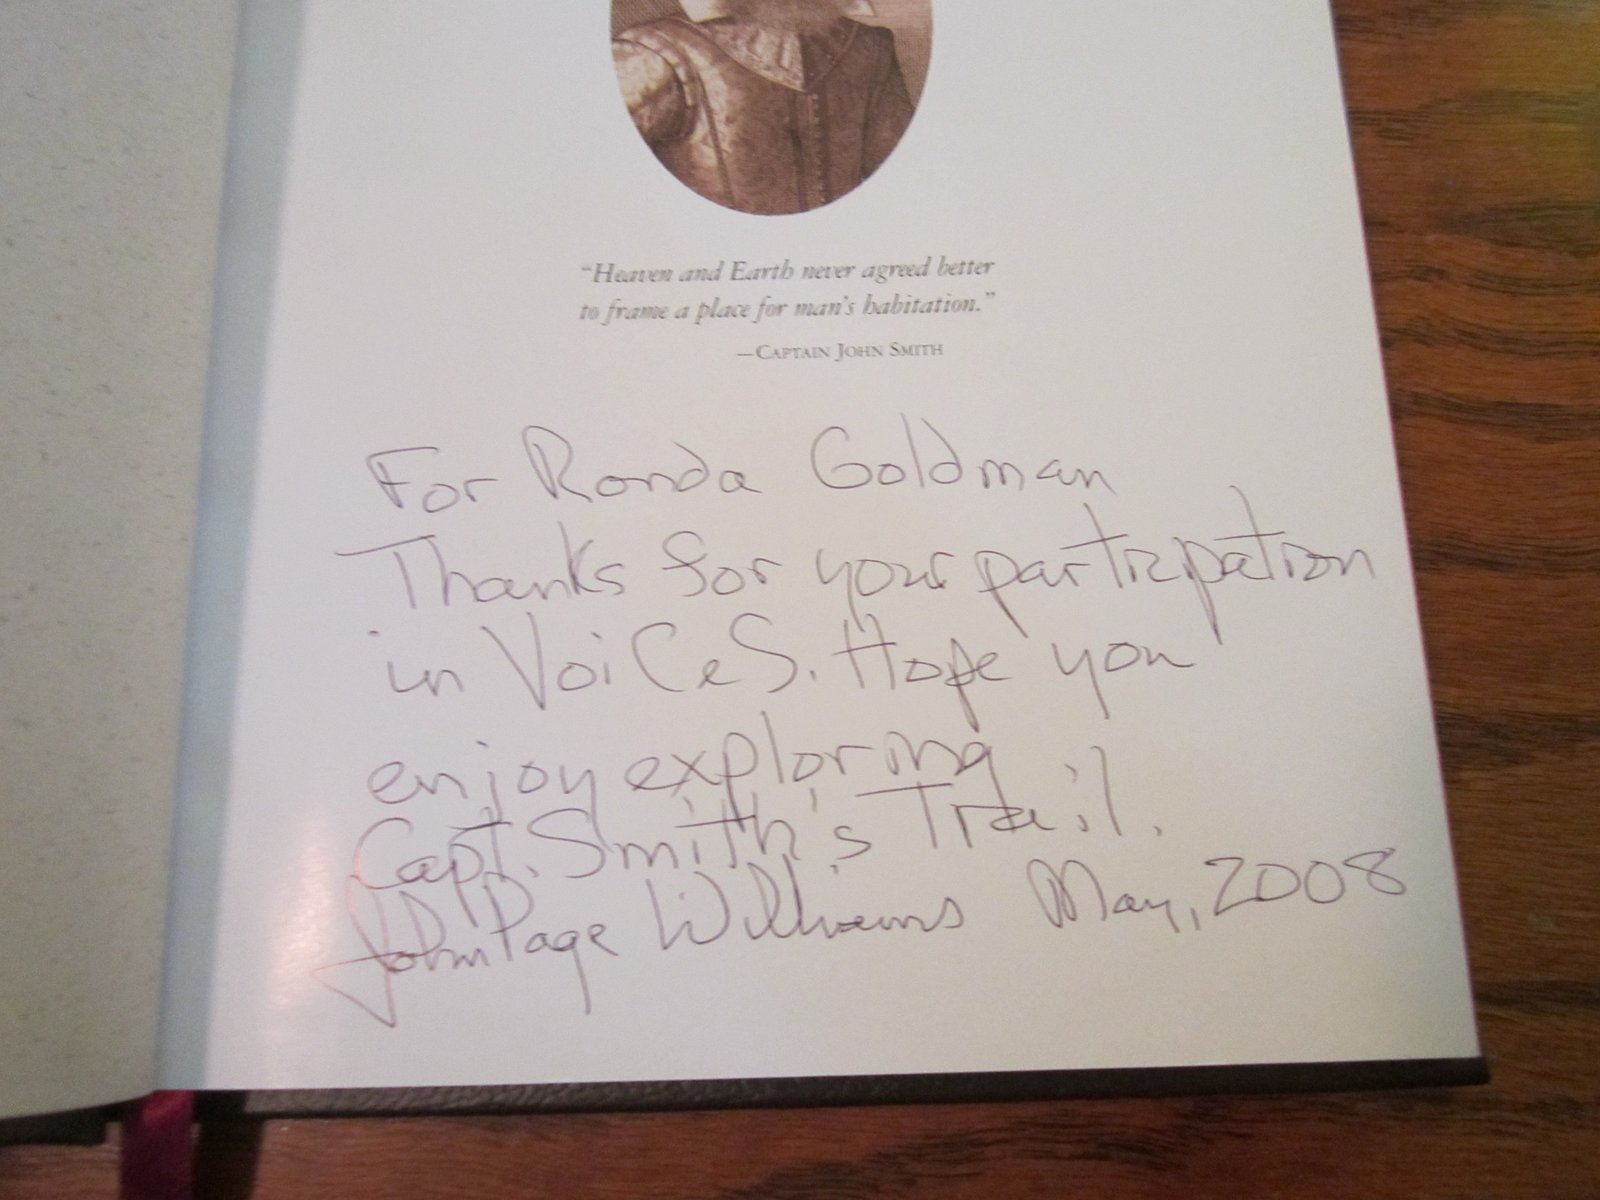 “Heaven and Earth never agreed better
to frame a place for man’s habitation.”
—CAPTAIN JOHN SMITH
For Ronda Goldman
Thanks for your participation
in VoiCeS. Hope you
enjoy exploring
Capt. Smith's Trail.
John Page Williams May, 2008